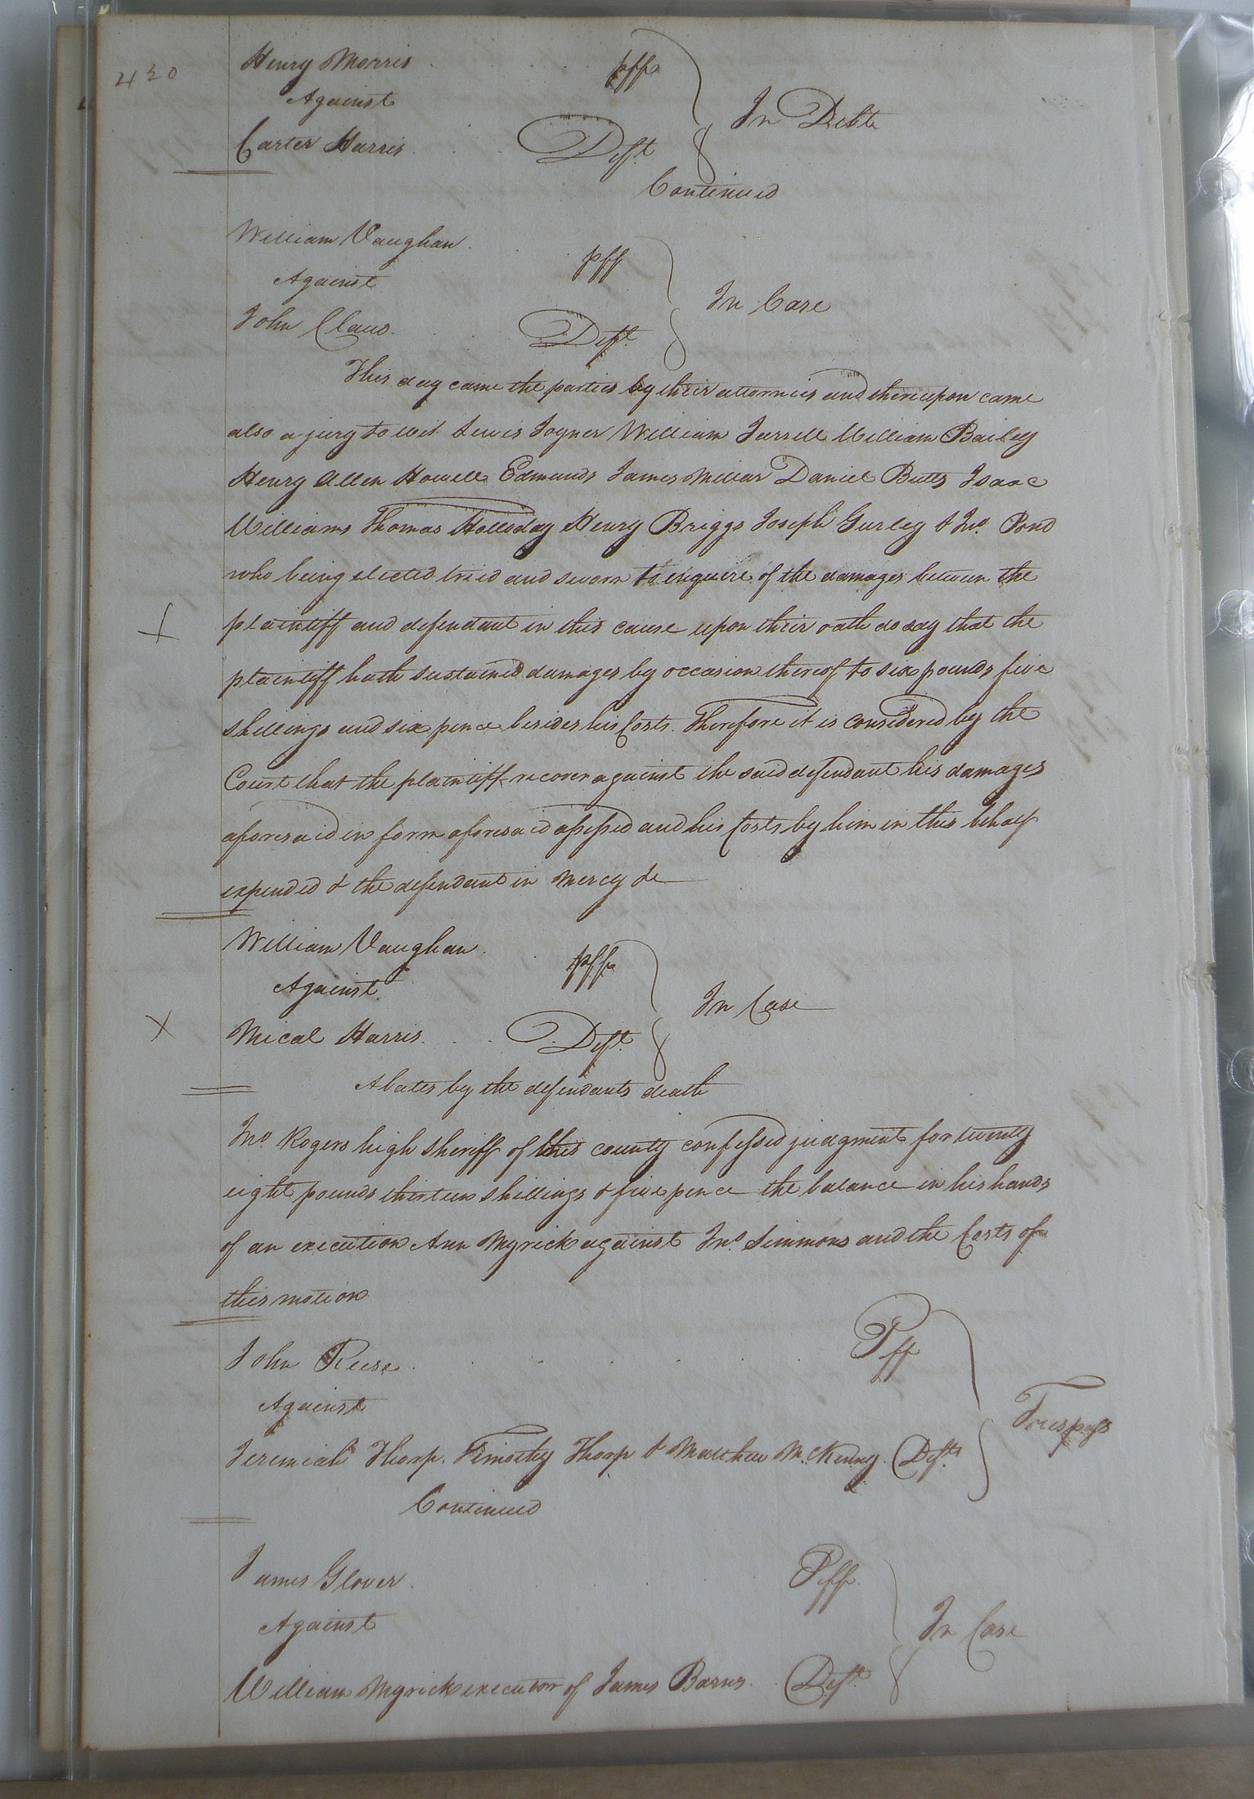 430
Henry Morris plff
Against In Debt
Carter Harris Deft
Continued
William Vaughan plff
Against In Case
John Claud Deft
This day came the parties by their attornies and thereupon came
also a jury to wit Lewis Joyner William Jarrell William Bailey
Henry Allen Howell Edmunds James Millar Daniel Butts Isaac
Williams Thomas Holleday Henry Briggs Joseph Gurley & Jno. Pond
who being elected tried and sworn to enquire of the damages between the
plaintiff and defendant in this cause upon their oath do say that the
plaintiff hath sustained damages by occasion thereof to six pounds five
shillings and six pence besides his Costs. Therefore it is considered by the
Court that the plaintiff recover against the said defendant his damages
aforesaid in form aforesaid assessed and his Costs by him in this behalf
expended & the defendant in Mercy &c
William Vaughan plff
Against In Case
Mical Harris Deft
Abates by the defendants death
Jno. Rogers high Sheriff of this county confessed judgment for twenty
eight pounds thirteen shillings & five pence the balance in his hands
of an execution Ann Myrick against Jno. Simmons and the Costs of
this motion
John Reese Plff
Against Trespass
Jeremiah Thorp. Timothy Thorp & Matthew McKenny Defts
Continued
James Glover Plff
Against In Case
William Myrick executor of James Barns Deft